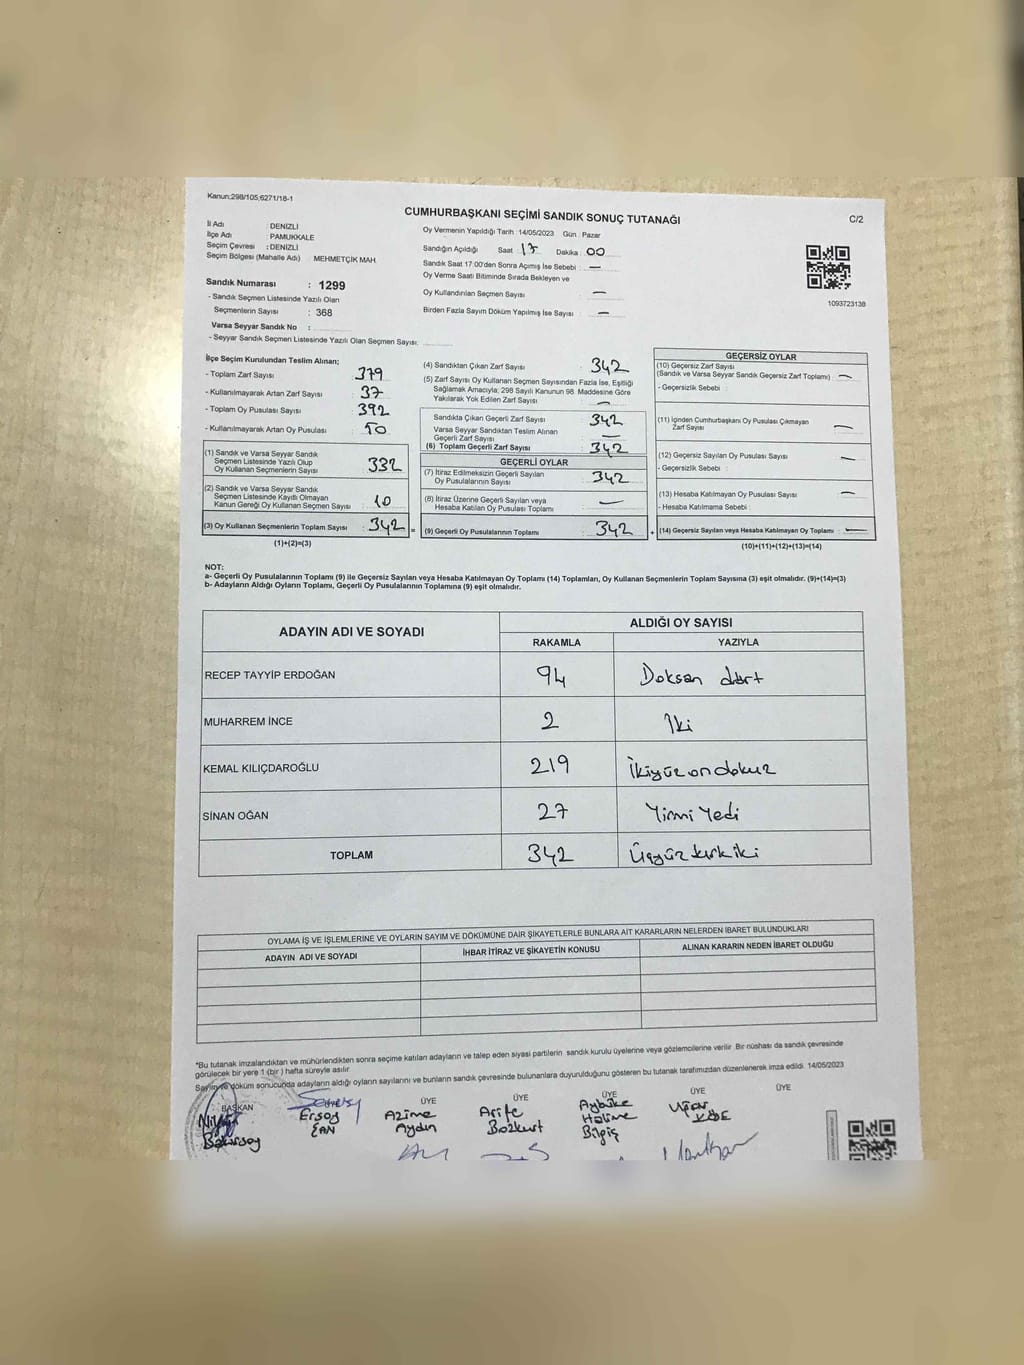 Kanun:298/105;6271/18-1
CUMHURBAŞKANI SEÇİMİ SANDIK SONUÇ TUTANAĞI
C/2
İl Adı : DENİZLİ
İlçe Adı : PAMUKKALE
Seçim Çevresi : DENİZLİ
Seçim Bölgesi (Mahalle Adı) : MEHMETÇİK MAH.
Oy Vermenin Yapıldığı Tarih : 14/05/2023 Gün : Pazar
Sandığın Açıldığı Saat 17 Dakika 00
Sandık Saat 17:00'den Sonra Açımış İse Sebebi : —
Oy Verme Saati Bitiminde Sırada Bekleyen ve
Oy Kullandırılan Seçmen Sayısı —
Birden Fazla Sayım Döküm Yapılmış İse Sayısı : —
1093723138
Sandık Numarası : 1299
- Sandık Seçmen Listesinde Yazılı Olan
Seçmenlerin Sayısı : 368
Varsa Seyyar Sandık No :
- Seyyar Sandık Seçmen Listesinde Yazılı Olan Seçmen Sayısı:
İlçe Seçim Kurulundan Teslim Alınan;
- Toplam Zarf Sayısı 379
- Kullanılmayarak Artan Zarf Sayısı 37
- Toplam Oy Pusulası Sayısı 392
- Kullanılmayarak Artan Oy Pusulası 50
(1) Sandık ve Varsa Seyyar Sandık
Seçmen Listesinde Yazılı Olup
Oy Kullanan Seçmenlerin Sayısı 332
(2) Sandık ve Varsa Seyyar Sandık
Seçmen Listesinde Kayıtlı Olmayan
Kanun Gereği Oy Kullanan Seçmen Sayısı 10
(3) Oy Kullanan Seçmenlerin Toplam Sayısı 342 =
(1)+(2)=(3)
(4) Sandıktan Çıkan Zarf Sayısı 342
(5) Zarf Sayısı Oy Kullanan Seçmen Sayısından Fazla İse, Eşitliği
Sağlamak Amacıyla; 298 Sayılı Kanunun 98. Maddesine Göre
Yakılarak Yok Edilen Zarf Sayısı —
Sandıkta Çıkan Geçerli Zarf Sayısı 342
Varsa Seyyar Sandıktan Teslim Alınan
Geçerli Zarf Sayısı —
(6) Toplam Geçerli Zarf Sayısı 342
GEÇERLİ OYLAR
(7) İtiraz Edilmeksizin Geçerli Sayılan
Oy Pusulalarının Sayısı 342
(8) İtiraz Üzerine Geçerli Sayılan veya
Hesaba Katılan Oy Pusulası Toplamı —
(9) Geçerli Oy Pusulalarının Toplamı 342 +
GEÇERSİZ OYLAR
(10) Geçersiz Zarf Sayısı
(Sandık ve Varsa Seyyar Sandık Geçersiz Zarf Toplamı) —
- Geçersizlik Sebebi :
(11) İçinden Cumhurbaşkanı Oy Pusulası Çıkmayan
Zarf Sayısı —
(12) Geçersiz Sayılan Oy Pusulası Sayısı —
- Geçersizlik Sebebi :
(13) Hesaba Katılmayan Oy Pusulası Sayısı —
- Hesaba Katılmama Sebebi :
(14) Geçersiz Sayılan veya Hesaba Katılmayan Oy Toplamı —
(10)+(11)+(12)+(13)=(14)
NOT:
a- Geçerli Oy Pusulalarının Toplamı (9) ile Geçersiz Sayılan veya Hesaba Katılmayan Oy Toplamı (14) Toplamları, Oy Kullanan Seçmenlerin Toplam Sayısına (3) eşit olmalıdır. (9)+(14)=(3)
b- Adayların Aldığı Oyların Toplamı, Geçerli Oy Pusulalarının Toplamına (9) eşit olmalıdır.
ADAYIN ADI VE SOYADI ALDIĞI OY SAYISI
RAKAMLA YAZIYLA
RECEP TAYYİP ERDOĞAN 94 Doksan dört
MUHARREM İNCE 2 İki
KEMAL KILIÇDAROĞLU 219 İkiyüz on dokuz
SİNAN OĞAN 27 Yirmi Yedi
TOPLAM 342 Üçyüz kırk iki
OYLAMA İŞ VE İŞLEMLERİNE VE OYLARIN SAYIM VE DÖKÜMÜNE DAİR ŞİKAYETLERLE BUNLARA AİT KARARLARIN NELERDEN İBARET BULUNDUKLARI
ADAYIN ADI VE SOYADI İHBAR İTİRAZ VE ŞİKAYETİN KONUSU ALINAN KARARIN NEDEN İBARET OLDUĞU
*Bu tutanak imzalandıktan ve mühürlendikten sonra seçime katılan adayların ve talep eden siyasi partilerin sandık kurulu üyelerine veya gözlemcilerine verilir. Bir nüshası da sandık çevresinde
görülecek bir yere 1 (bir) hafta süreyle asılır
Sayım ve döküm sonucunda adayların aldığı oyların sayılarını ve bunların sandık çevresinde bulunanlara duyurulduğunu gösteren bu tutanak tarafımızdan düzenlenerek imza edildi. 14/05/2023
BAŞKAN ÜYE ÜYE ÜYE ÜYE ÜYE
Ersoy Azime Arife Aybüke Uğur
Aydın Bozkurt Halime KÖSE
Bilgiç